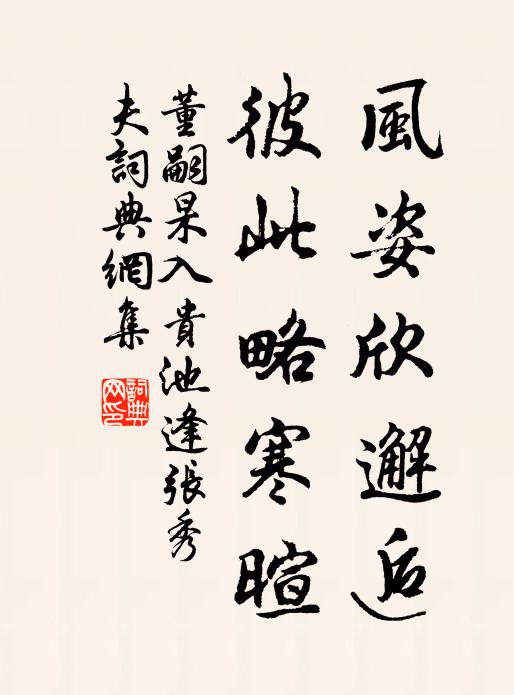 風姿欣邂逅
彼此略寒暄
董嗣杲入貴池逢張秀
夫詞典網集
詞典網印